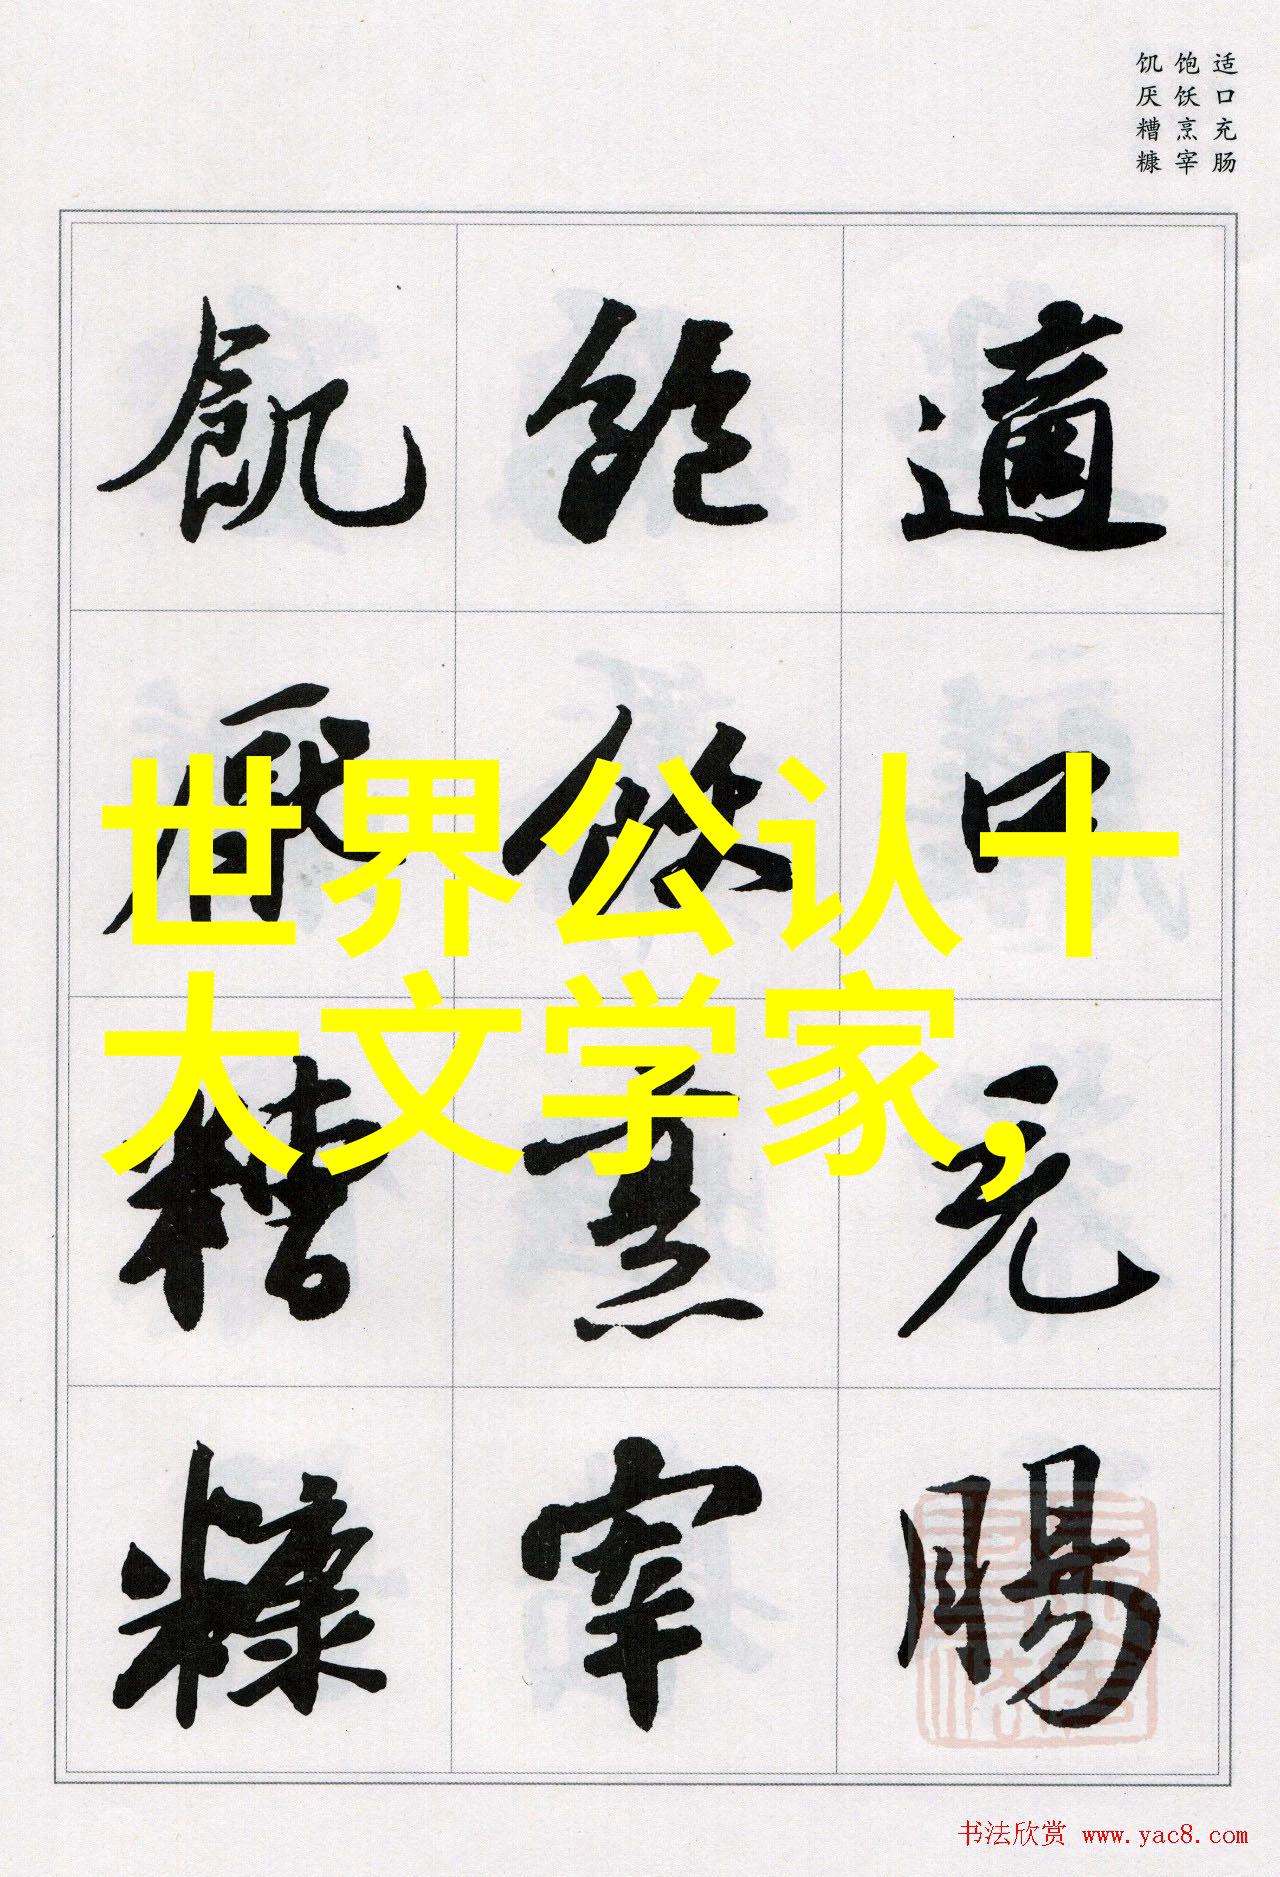 适口充肠
饱饫烹宰
饥厌糟糠
適口充腸
飽飫烹宰
飢厭糟糠
世界公认十
大文学家,
书法欣赏 www.yac8.com